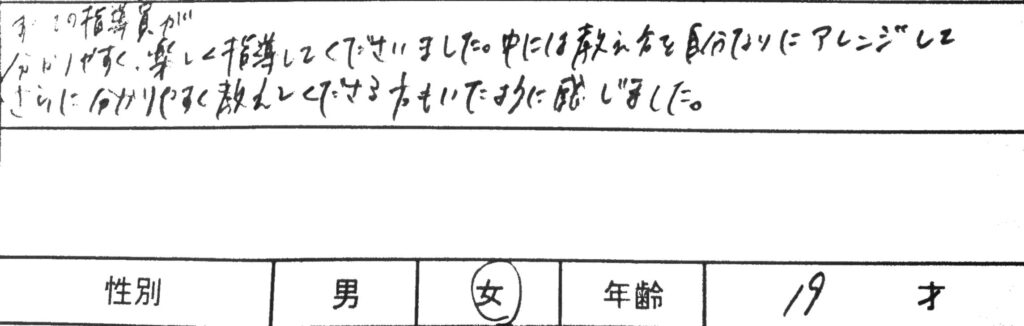 すべての指導員が
分かりやすく、楽しく指導してくださいました。中には教え方を自分なりにアレンジして
さらに分かりやすく教えてくださる方もいたように感じました。
性別 男 女 年齢 19 才